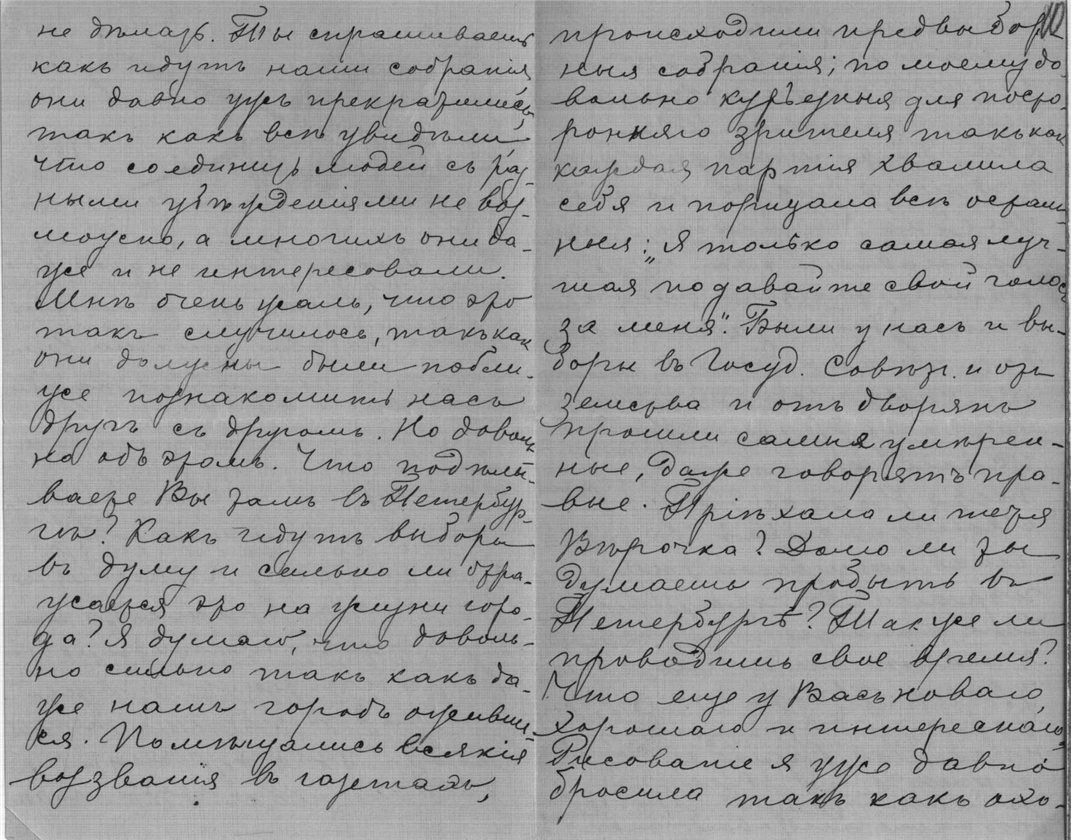 не дѣлать. Ты спрашиваешь
какъ идутъ наши собранія,
они давно ужъ прекратились,
такъ какъ всѣ увидѣли
что соединить людей съ раз-
ными убѣжденіями не воз-
можно, а многихъ они да-
же и не интересовали.
Мнѣ очень жаль, что это
такъ случилось, такъ какъ
они должны были побли-
же познакомить насъ
другъ съ другомъ. Но доволь
но объ этомъ. Что подѣлы-
ваете Вы тамъ въ Петербур-
гѣ? Какъ идутъ выборы
въ думу и сильно ли отра-
жается это на жизни горо-
да? Я думаю, что доволь-
но сильно такъ какъ да-
же нашъ городъ оживил-
ся. Помѣщались всякія
воззванія въ газетахъ,
происходили предвыбор
ныя собранія; по моему до
вольно курьезныя для посто-
ронняго зрителя такъ как
каждая партія хвалила
себя и порицала всѣ осталь
ныя: „я только самая луч-
шая подавайте свой голос
за меня". Были у насъ и вы-
боры въ Госуд. Совѣт. и отъ
земства и отъ дворянъ
прошли самыя умѣрен-
ные, даже говорятъ пра-
вые. Пріѣхала ли тетя
Вѣрочка? Долго ли ты
думаешь пробыть въ
Петербургѣ? Так же ли
проводишь свое время?
Что еще у Васъ новаго,
хорошаго и интереснаго,
Рисованіе я уже давно
бросила такъ какъ охо-